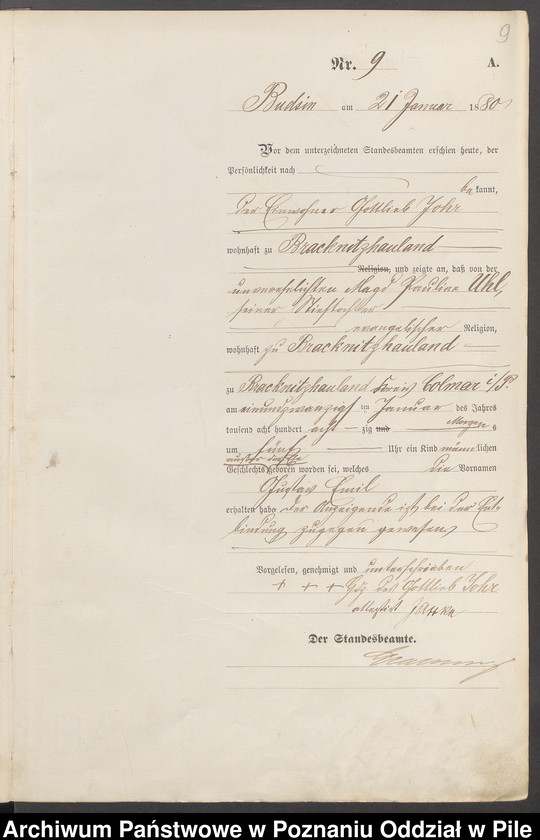 9
Nr. 9 A.
Budsin am 21 Januar 1880
Vor dem unterzeichneten Standesbeamten erschien heute, der
Persönlichkeit nach
bekannt,
der Einwohner Gottlieb Johr
wohnhaft zu Bracknitzhauland
Religion, und zeigte an, daß von der
unverehelichten Magd Pauline Uhl,
seiner Stieftochter
evangelischer Religion,
wohnhaft zu Bracknitzhauland
zu Bracknitzhauland Kreis Colmar i/P.
am einundzwanzigst ten Januar des Jahres
tausend acht hundert acht zig und Morgens
um fünf Uhr ein Kind männlichen
Geschlechts geboren worden sei, welches die Vornamen
Gustav Emil
erhalten habe der Anzeigende ist bei der Ent
bindung zugegen gewesen
Vorgelesen, genehmigt und unterschrieben
+ + + Hdz. des Gottlieb Johr
attestirt
Der Standesbeamte.
Archiwum Państwowe w Poznaniu Oddział w Pile